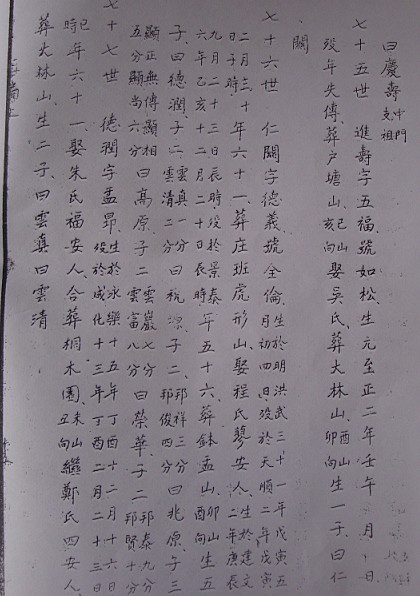 曰慶壽中門支祖
七十五世 進壽字五福號如松生元至正二年壬午 月 日
歿年失傳葬戶塘山巳山亥向娶吳氏葬大林山酉山卯向生一子曰仁
關
七十六世 仁關字德義號全倫生於明洪武三十一年戊寅五月初四日歿於天順二年戊寅
二月三十日子時年六十一葬庄班虎形山娶程氏寥安人生於建文二年庚辰
九月二十三日辰時歿於景泰六年乙亥十二月二十日辰時年五十六葬鉢盂山卯山酉向生五
子曰德潤子二雲真一分雲清二分曰秔源子二邦祥三分邦俊四分曰兆原子三
顯正無傳顯相五分顯尚六分曰高原子二雲巖七分雲富八分曰榮華子二邦泰九分邦賢十分
七十七世 德潤字孟昂生於永樂十五年丁酉十二月十六日歿於成化十三年丁酉二月二十三日
巳時年六十一娶朱氏福安人合葬桐木園未山丑向繼鄭氏四安人
葬大林山生二子曰雲真曰雲清